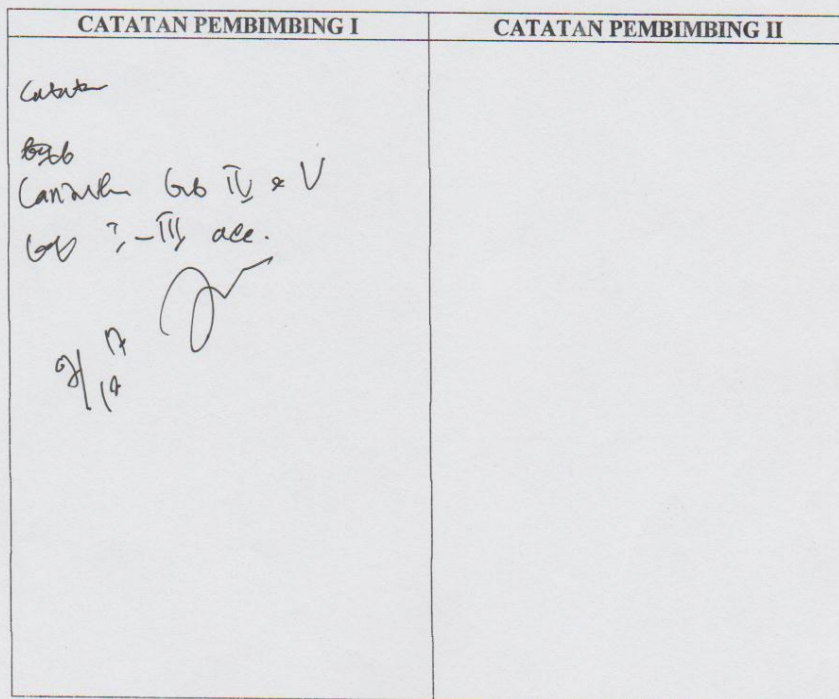 CATATAN PEMBIMBING I
CATATAN PEMBIMBING II
Catatan
Lanjutkan bab IV & V
bab I - III acc.